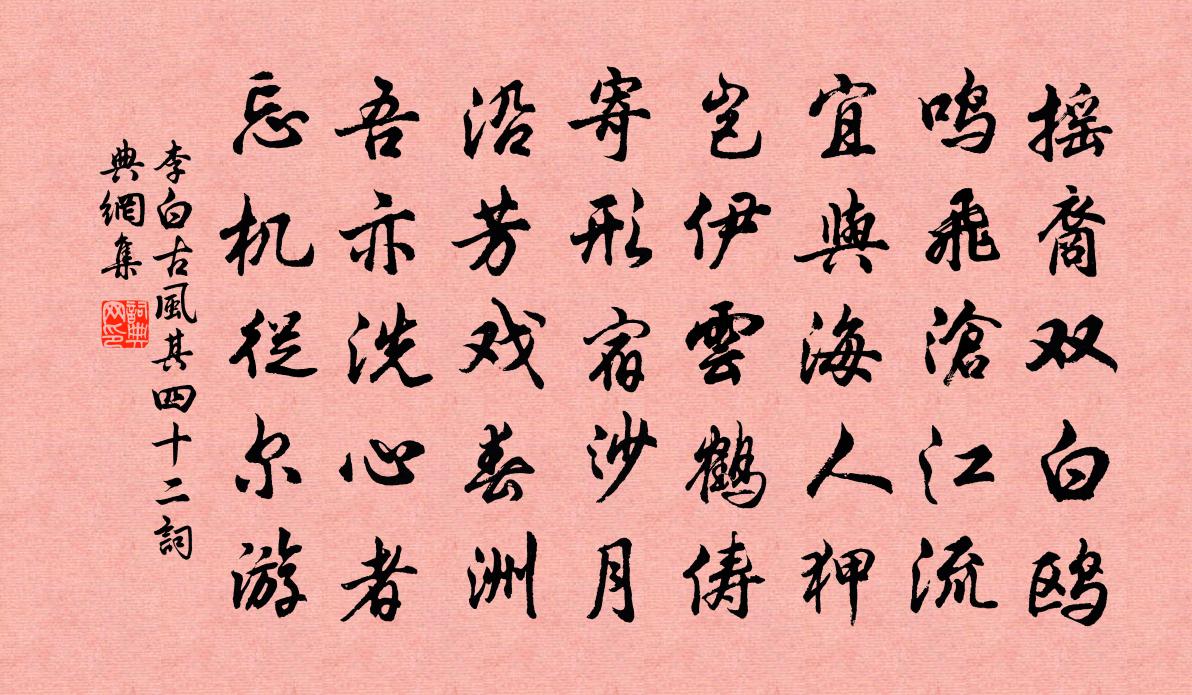 摇裔双白鸥
鸣飛滄江流
宜與海人狎
岂伊雲鶴俦
寄形宿沙月
沿芳戏春洲
吾亦洗心者
忘机從尔游
李白古風其四十二詞
典網集
詞典网印